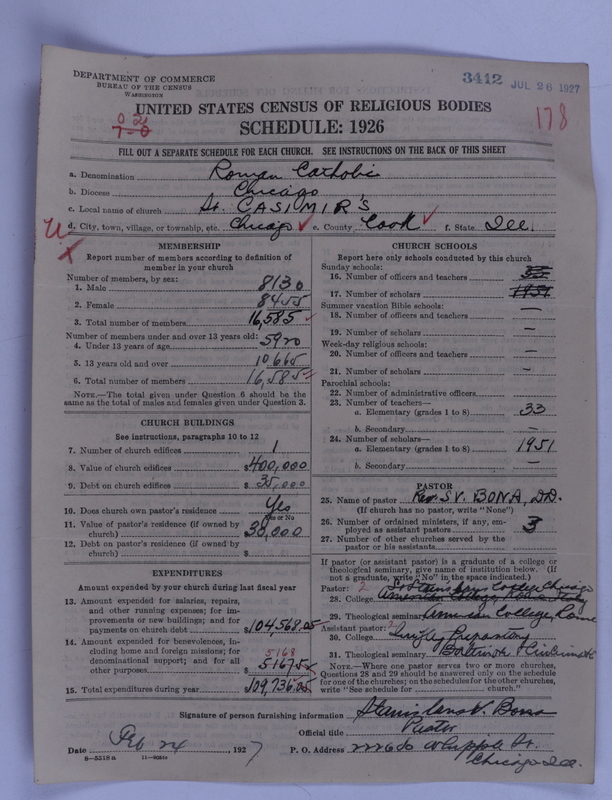 DEPARTMENT OF COMMERCE
BUREAU OF THE CENSUS
WASHINGTON
3412 JUL 26 1927
UNITED STATES CENSUS OF RELIGIOUS BODIES
7-0
178
SCHEDULE: 1926
FILL OUT A SEPARATE SCHEDULE FOR EACH CHURCH. SEE INSTRUCTIONS ON THE BACK OF THIS SHEET
a. Denomination Roman Catholic
b. Diocese Chicago
c. Local name of church St. CASIMIR'S
d. City, town, village, or township, etc. Chicago e. County Cook f. State Ill.
MEMBERSHIP
Report number of members according to definition of
member in your church
Number of members, by sex:
1. Male 8130
2. Female 8455
3. Total number of members 16,585
Number of members under and over 13 years old:
4. Under 13 years of age 5920
5. 13 years old and over 10,665
6. Total number of members 16,585
NOTE.—The total given under Question 6 should be
the same as the total of males and females given under Question 3.
CHURCH BUILDINGS
See instructions, paragraphs 10 to 12
7. Number of church edifices 1
8. Value of church edifices $400,000
9. Debt on church edifices $35,000
10. Does church own pastor's residence? Yes
Yes or No
11. Value of pastor's residence (if owned by
church) $30,000
12. Debt on pastor's residence (if owned by
church) $
EXPENDITURES
Amount expended by your church during last fiscal year
13. Amount expended for salaries, repairs,
and other running expenses; for im-
provements or new buildings; and for
payments on church debt $104,568.05
14. Amount expended for benevolences, in-
cluding home and foreign missions; for
denominational support; and for all
5168
other purposes $
15. Total expenditures during year $109,736.05
CHURCH SCHOOLS
Report here only schools conducted by this church
Sunday schools:
16. Number of officers and teachers 33
17. Number of scholars 1951
Summer vacation Bible schools:
18. Number of officers and teachers —
19. Number of scholars —
Week-day religious schools:
20. Number of officers and teachers —
21. Number of scholars —
Parochial schools:
22. Number of administrative officers
23. Number of teachers—
a. Elementary (grades 1 to 8) 33
b. Secondary —
24. Number of scholars—
a. Elementary (grades 1 to 8) 1951
b. Secondary —
PASTOR
25. Name of pastor Rev. S.V. BONA, D.D.
(If church has no pastor, write "None")
26. Number of ordained ministers, if any, em-
ployed as assistant pastors 3
27. Number of other churches served by the
pastor or his assistants
If pastor (or assistant pastor) is a graduate of a college or
theological seminary, give name of institution below. (If
not a graduate, write "No" in the space indicated.)
Pastor: 2
28. College Chicago
29. Theological seminary American College, Rome
Assistant pastor:
30. College Quigley Preparatory
31. Theological seminary Baltimore &
NOTE.—Where one pastor serves two or more churches,
Questions 28 and 29 should be answered only on the schedule
for one of the churches; on the schedules for the other churches,
write "See schedule for church."
Signature of person furnishing information Stanislaus V. Bona
Official title Pastor
Date Feb 24, 1927 P. O. Address Whipple St.
Chicago Ill.
8-5518a